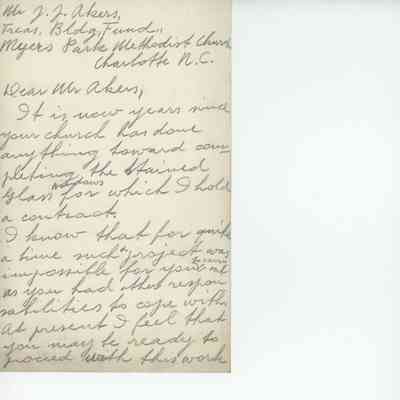 Mr J. J. Akers,
Treas. Bldg. Fund,
Myers Park Methodist Church
Charlotte N.C.
Dear Mr Akers,
It is now years since
your church has done
anything toward com-
pleting the stained
glass windows for which I hold
a contract.
I know that for quite
a time such a project was
impossible for you
as you had other respon
sabilities to cope with.
At present I feel that
you may be ready to
proceed with this work